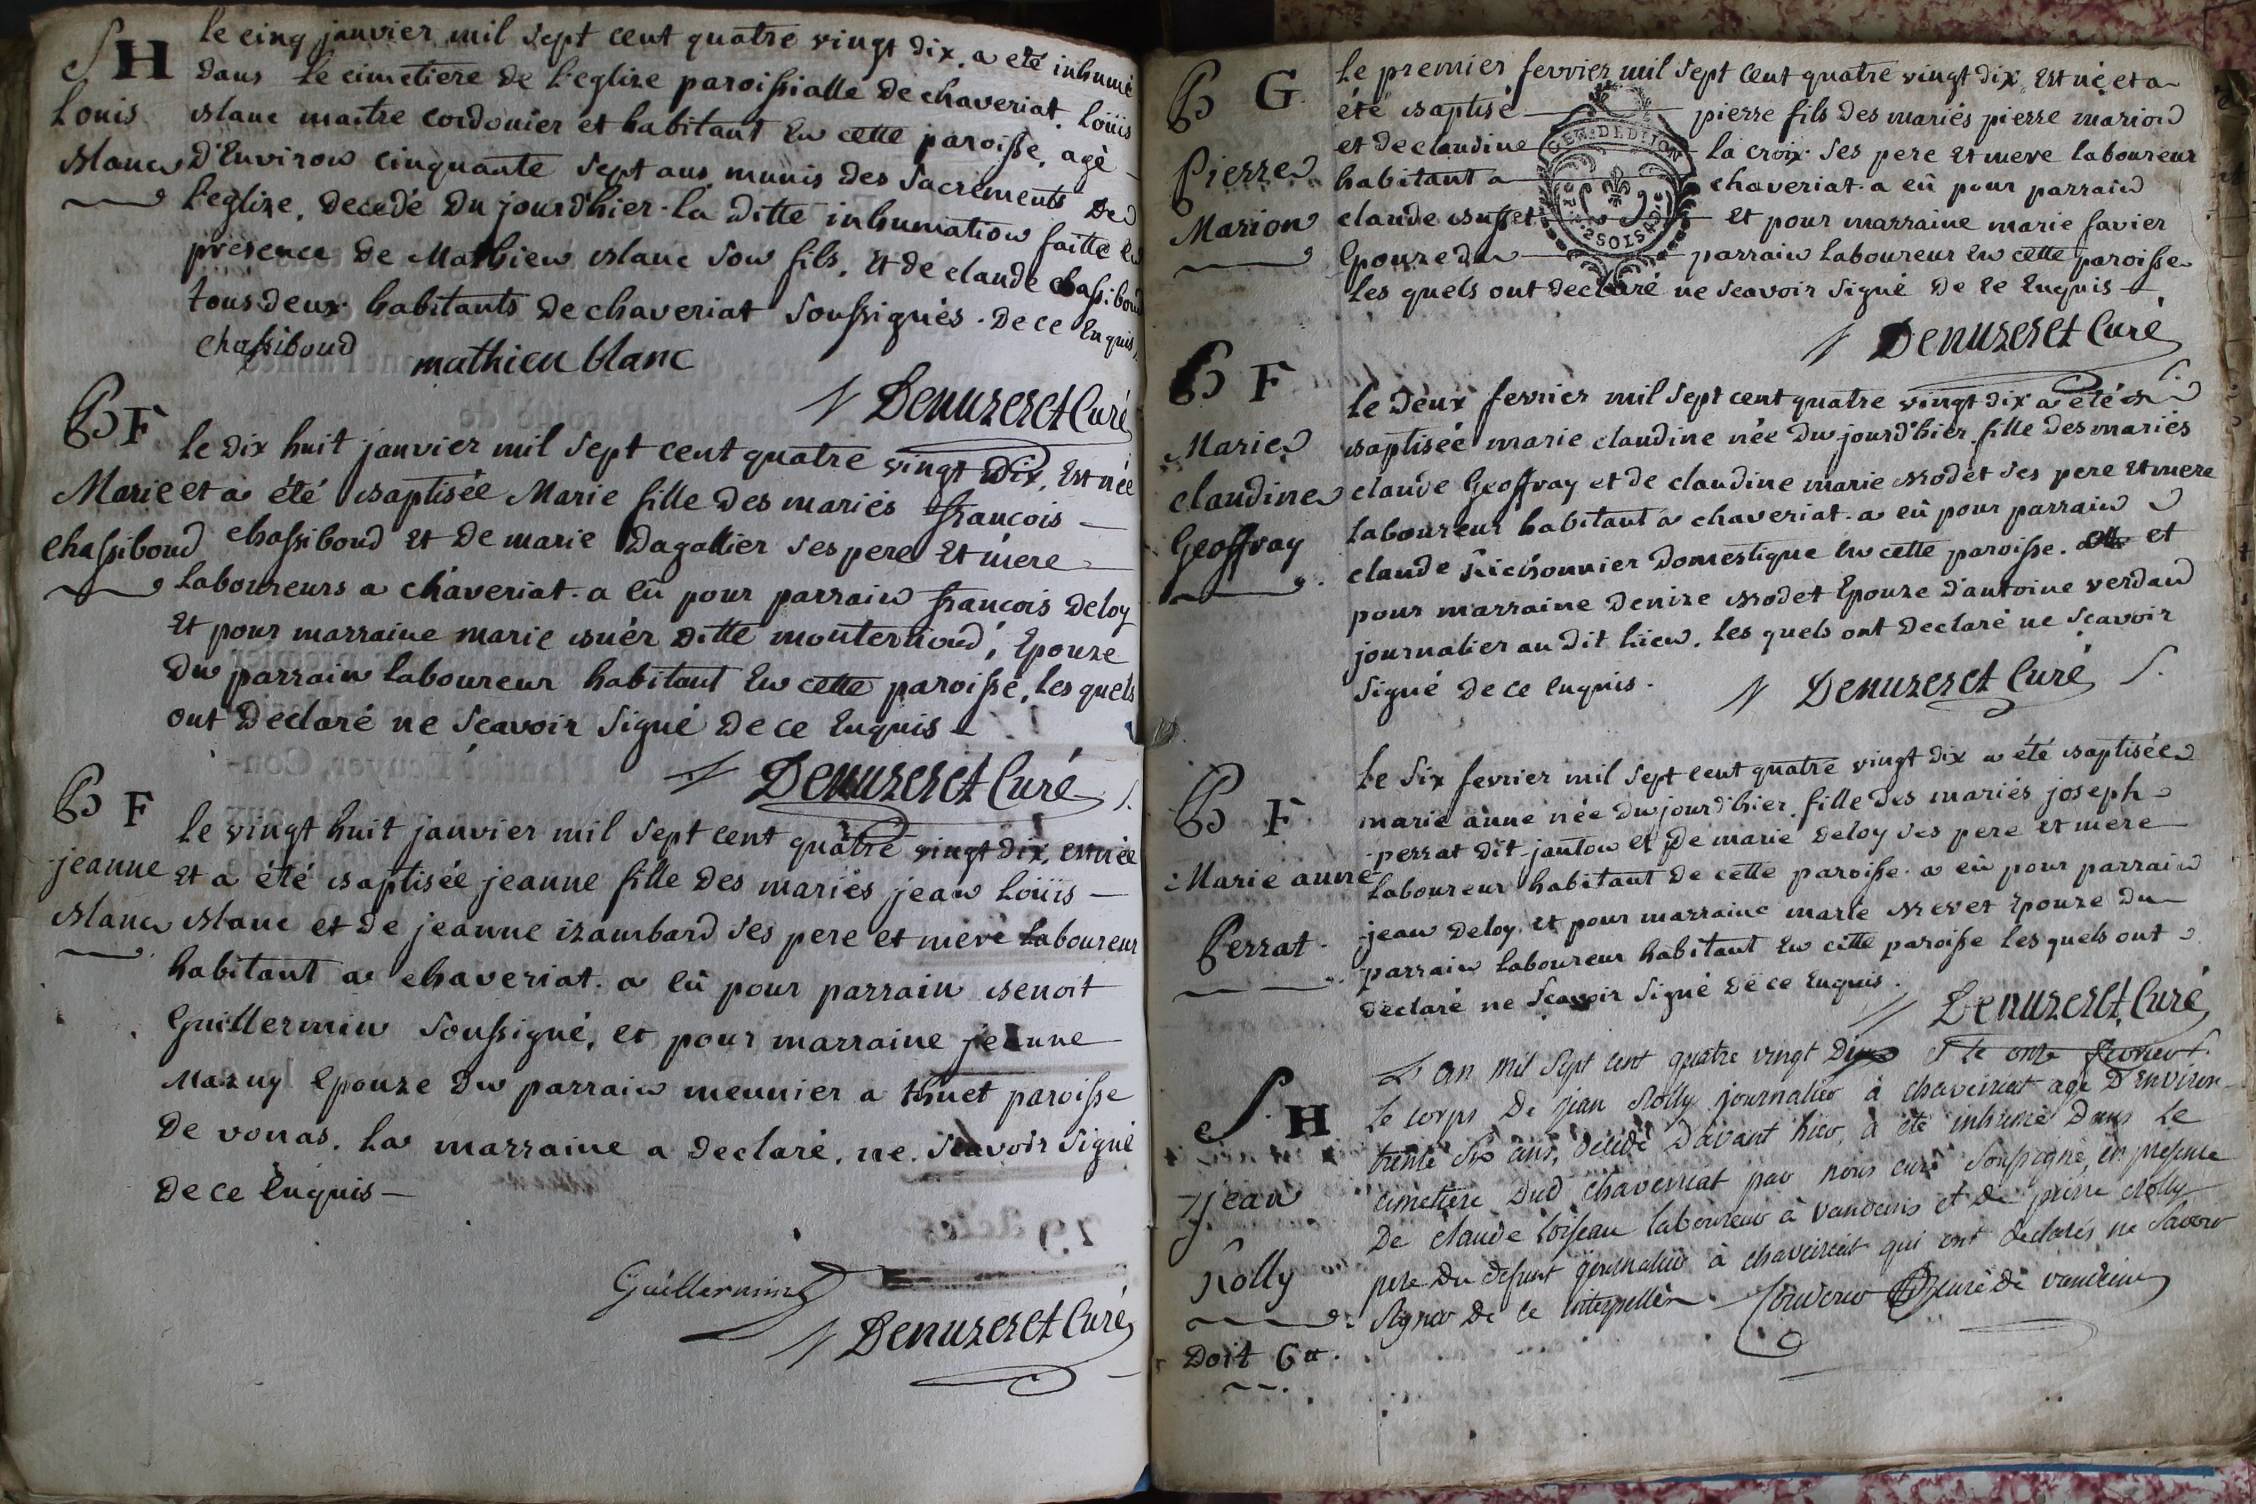 S H
Louis
Blanc
le cinq janvier mil sept cent quatre vingt dix. a eté inhumé
dans le cimetiere de l'eglize paroissialle de chaveriat. Loüis
Blanc maitre cordonier et habitant En cette paroisse, agé
d'Environ cinquante sept ans munis des Sacrements De
l'eglize, Decedé Du jourd'hier. la ditte inhumation faitte En
presence De Mathieu Blanc Son fils, Et de claude chassiboud
tous deux habitants De chaveriat Soussignés. De ce Enquis
chassiboud mathieu blanc
Denuzeret Curé
B F
Marie
chassiboud
le Dix huit janvier mil Sept cent quatre vingt Dix, Est née
et a été Baptisée Marie fille Des mariés françois
chassiboud Et De marie Dagallier Ses pere Et mere
Laboureurs a chaveriat. a Eû pour parrain françois Deloy
Et pour marraine marie Buér Ditte monternoud, Epouze
Du parrain laboureur habitant En cette paroisse, les quels
ont Declaré ne Scavoir Signé De ce Enquis
Denuzeret Curé
B F
jeanne
Blanc
le vingt huit janvier mil Sept cent quatre vingt Dix, est née
Et a été Baptisée jeanne fille Des mariés jean Loüis
Blanc et De jeanne izambard Ses pere et mere Laboureur
habitant a chaveriat. a Eû pour parrain Benoit
Guillermin Soussigné, et pour marraine jeanne
Mazuy Epouze Du parrain meunier a thuet paroisse
De vonas. La marraine a Declaré, ne Scavoir Signé
De ce Enquis
Guillermin
Denuzeret Curé
B G
Pierre
Marion
Le premier fevrier mil Sept Cent quatre vingt Dix, Est né et a
été Baptisé pierre fils Des mariés pierre marion
et De claudine la croix Ses pere Et mere laboureur
habitant a chaveriat. a eû pour parrain
claude Buffet Et pour marraine marie favier
Epouze Du parrain laboureur En cette paroisse
Les quels ont Declaré ne Scavoir Signé De ce Enquis
GEN. DE DIJON
Denuzeret Curé
B F
Marie
claudine
Geoffray
le Deux fevrier mil Sept cent quatre vingt Dix a été
Baptisée marie claudine née Du jourd'hier fille Des mariés
claude Geoffray et de claudine marie Brodet Ses pere Et mere
laboureur habitant a chaveriat. a eû pour parrain
claude Domestique En cette paroisse. et
pour marraine Denize Brodet Epouze D'antoine verdan
journalier au Dit Lieu. Les quels ont Declaré ne Scavoir
Signé De ce Enquis.
Denuzeret Curé
B F
Marie anne
Perrat
le Six fevrier mil Sept cent quatre vingt Dix a été Baptisée
marie anne née Du jourd'hier fille Des mariés joseph
perrat Dit janton et De marie Deloy Ses pere et mere
laboureur habitant De cette paroisse. a eû pour parrain
jean Deloy. et pour marraine marie Brevet Epouze Du
parrain laboureur habitant En cette paroisse les quels ont
Declaré ne Scavoir Signé De ce Enquis.
Denuzeret Curé
S. H
jean
Rolly
Doit 6 tt.
L'an mil Sept cent quatre vingt Dix et le onze fevrier
Le corps De jean Rolly journalier à chaveiriat agé D'Environ
trente Six ans, décédé D'avant hier, a été inhumé Dans le
cimetiere Dud chaveiriat par nous curé Soussigné, en presence
De claude Loiseau laboureur à vandeins et de pierre Rolly
pere Du defunt journalier à chaveiriat qui ont declarés ne Savoir
Signer De ce interpellés. curé de vandeins